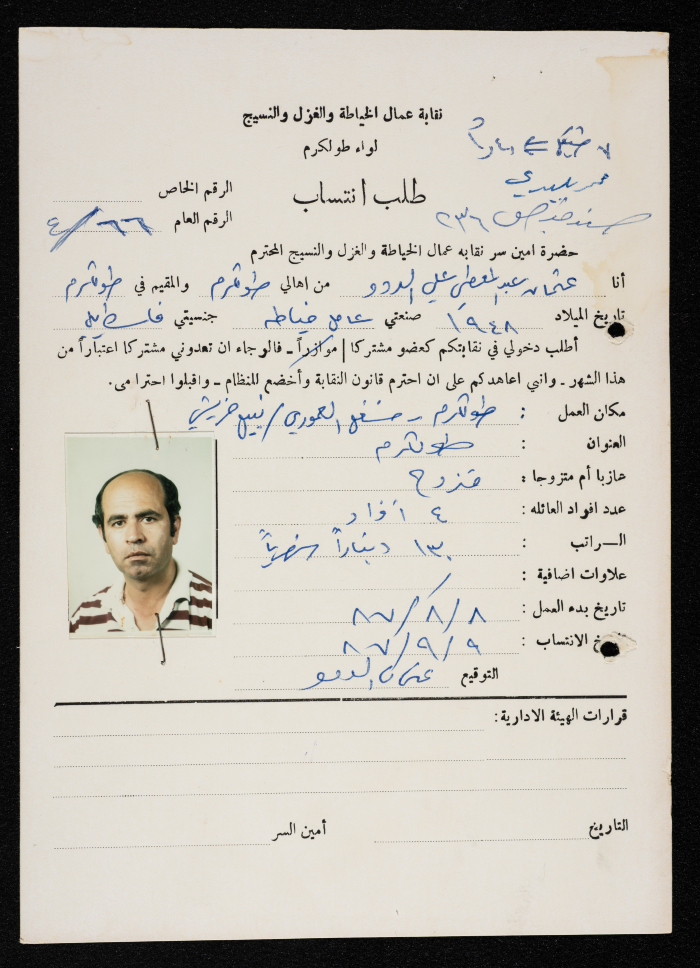 نقابة عمال الخياطة والغزل والنسيج
لواء طولكرم
طلب انتساب
الرقم الخاص
الرقم العام ٤/٦٦
صندوق ٢٣٦
حضرة امين سر نقابه عمال الخياطة والغزل والنسيج المحترم
أنا عثمان عبد المعطي علي الددو من اهالي طولكرم والمقيم في طولكرم
تاريخ الميلاد ١٩٤٨ صنعتي عامل خياطه جنسيتي
أطلب دخولي في نقابتكم كعضو مشتركا / موازراً ـ فالرجاء ان تعدوني مشتركا اعتباراً من
هذا الشهر ـ وانني اعاهدكم على ان احترم قانون النقابة وأخضع للنظام ـ واقبلوا احترامى.
مكان العمل : طولكرم ـ مشغل العموري / نبيل
العنوان : طولكرم
عازبا أم متزوجا : متزوج
عدد افراد العائله : ٤ أفراد
الـــراتب : ١٣٠ ديناراً شهرياً
علاوات اضافية :
تاريخ بدء العمل : ٨٧/٨/٨
خ الانتساب : ٨٧/٩/٩
التوقيع عثمان الددو
قرارات الهيئة الادارية :
التاريخ أمين السر